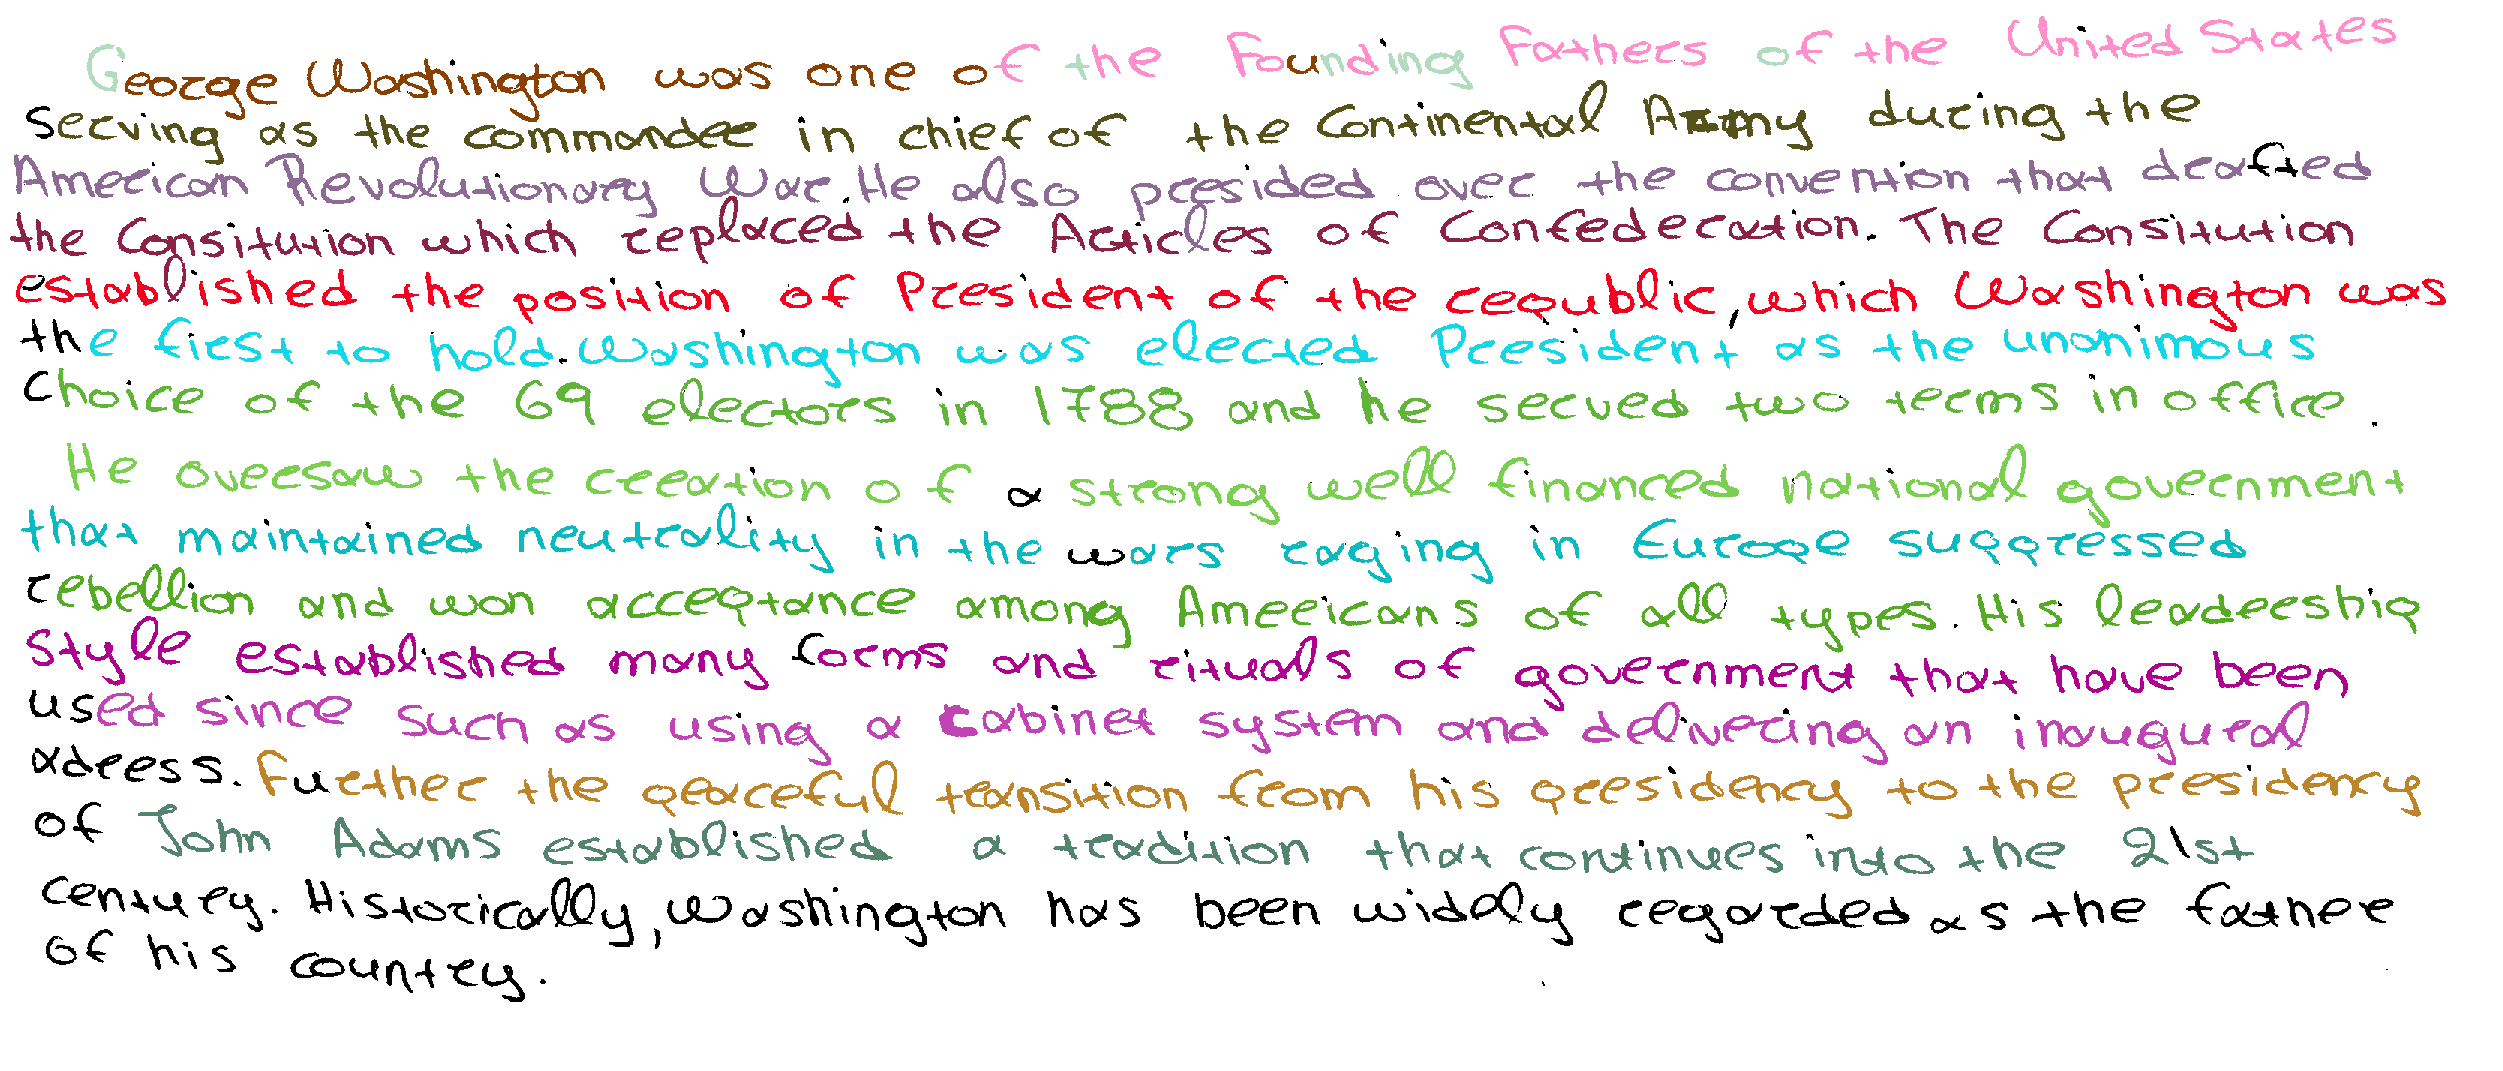 George Washington was one of the Founding Fathers of the United States
serving as the commander in chief of the Continental Army during the
American Revolutionary War. He also presided over the convention that drafted
the Consitution which replaced the Articles of Confederation. The Consitution
established the position of President of the republic, which Washington was
the first to hold. Washington was elected President as the unanimous
choice of the 69 electors in 1788 and he served two terms in office.
He oversaw the creation of a strong well financed national government
that maintained neutrality in the wars raging in Europe suppressed
rebellion and won acceptance among Americans of all types. His leadership
style established many forms and rituals of government that have been
used since such as using a cabinet system and delivering an inaugural
adress. Further the peaceful transition from his presidency to the presidency
of John Adams established a tradition that continues into the 21st
century. Historically, Washington has been widely regarded as the father
of his country.